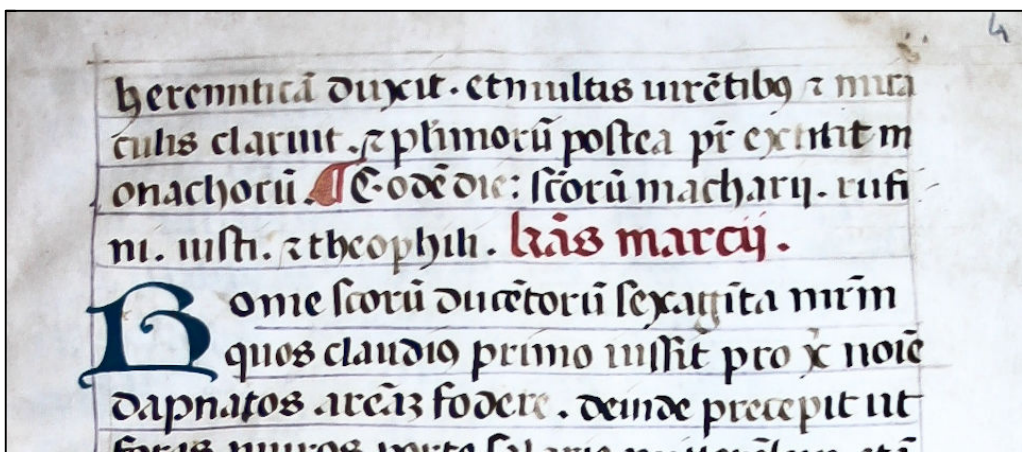 4
heremiticā duxit. et multis uirtētibꝫ ⁊ mira
culis claruit. ⁊ plīmorū postea pr̄ extitit m
onachorū. ¶ Eodē die: sc̄orū macharij. rufi
ni. iusti. ⁊ theophili. kl̄as marcij.
Rome sc̄orū ducētorū sexagīta mr̄m
quos claudiꝰ primo iussit pro xͥ noīe
dapnatos areāꝫ fodere. deinde precepit ut
foras muros porte